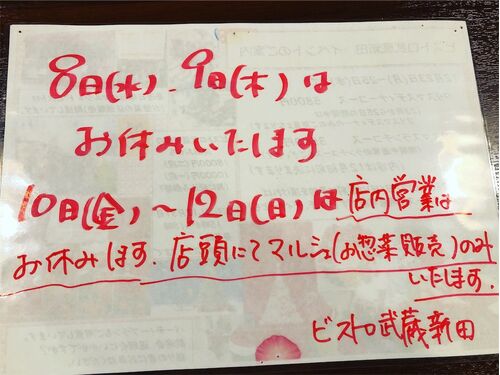 8日(水)、9日(木)は
お休みいたします
10日(金)～12日(日)は店内営業は
お休みします。店頭にてマルシェ(お惣菜販売)のみ
いたします。
ビストロ武蔵新田